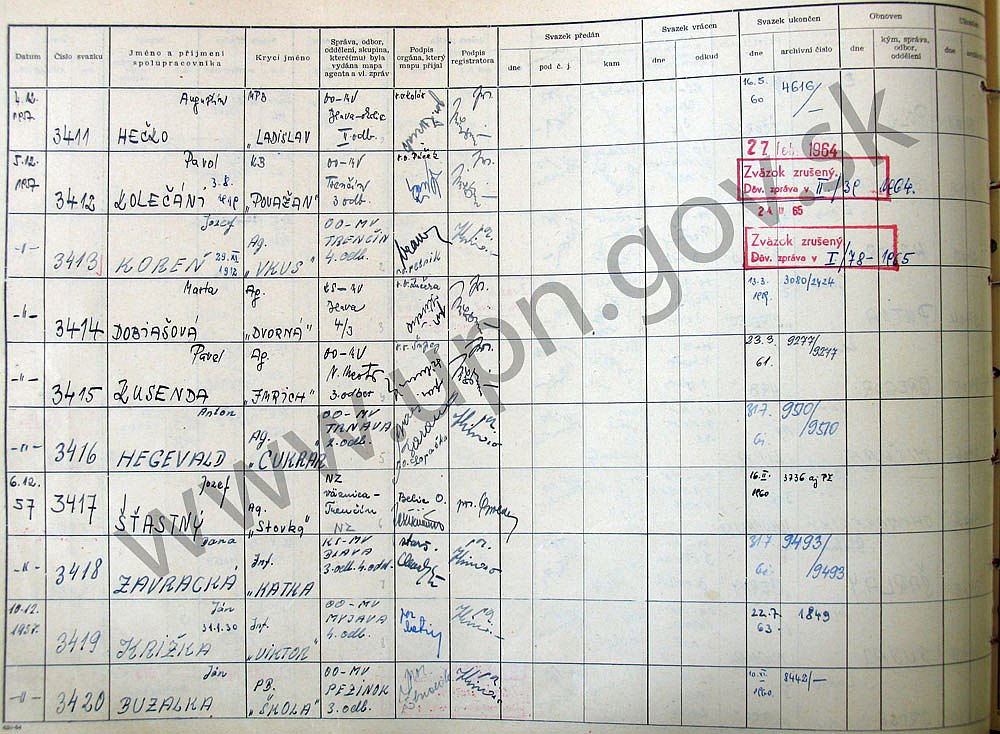 Datum
Číslo svazku
Jméno a příjmení spolupracovníka
Krycí jméno
Správa, odbor, oddělení, skupina, které(mu) byla vydána mapa agenta a vl. zpráv
Podpis orgána, který mapu přijal
Podpis registratora
Svazek předán
dne
pod č. j.
kam
Svazek vrácen
dne
odkud
Svazek ukončen
dne
archivní číslo
Obnoven
dne
kým, správa, odbor, oddělení
dne
4.12. 1957
3411
Augustín HEČKO
MPB
"LADISLAV"
OO-MV
II odb.
16.5. 60
4616/—
5.12. 1957
3412
Pavol KOLEČÁNI
3.8.
KB
"POVAŽAN"
OO-MV
Trenčín
3 odb.
27 feb. 1964
Zväzok zrušený.
Dôv. zpráva v II/39 1964.
-"-
3413
Jozef KOREŇ
29.XI 1912
Ag.
"VKUS"
OO-MV
TRENČÍN
4. odb.
65
Zväzok zrušený
Dôv. zpráva v I/78- 1965
-"-
3414
Marta DOBIAŠOVÁ
Ag.
"DVORNÁ"
KS-MV
4/3
13.3. 1959
3080/2424
-"-
3415
Pavel KUSENDA
Ag.
"IMRICH"
OO-MV
3. odbor
23.3. 61.
9277/9247
-"-
3416
Anton HEGEVALD
Ag.
"CUKRÁR"
OO-MV
TRNAVA
2. odb.
317. 61.
9510/9510
6.12. 57
3417
Jozef ŠŤASTNÝ
Ag.
"Stovka"
NZ
väznica-
Trenčín
NZ
16.II. 1960
3736
-"-
3418
Jana ZAVRACKÁ
Inf.
"KATKA"
KS-MV
BLAVA
3. odb. 4. odd.
317 61.
9493/9493
10.12. 1957.
3419
Ján KRIŽKA
31.1.30
Inf.
"VIKTOR"
OO-MV
MYJAVA
4. odb.
22.7. 63.
1849
-"-
3420
Ján BUZALKA
PB.
"ŠKOLA"
OO-MV
PEZINOK
3. odb.
10.XI. 1960
8442/—
www.upn.gov.sk